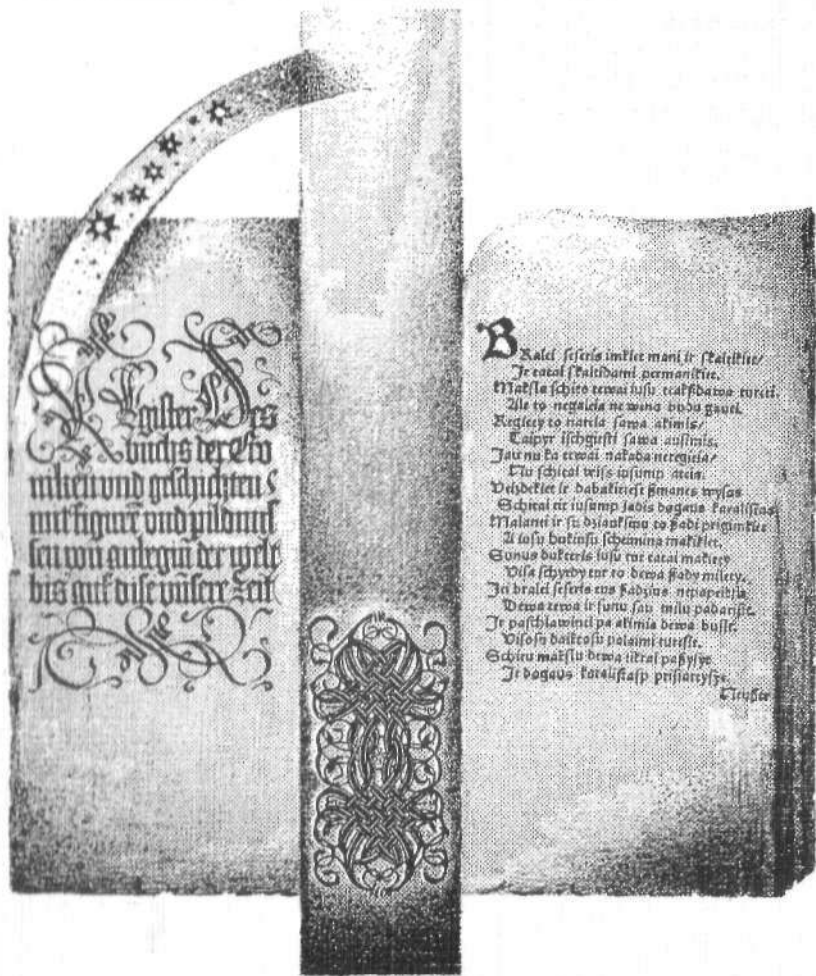 REgiſter Des
buchs der Cro
niken vnd geſchichten
mit figurē vnd pildnuſ
ſen von anbegiñ der welt
bis auf diſe vnſere Zeit
BRalei ſeſeris imkiet mani ir ſkaitikiet/
Ir tatai ſkaitidami permanikiet.
Makſla ſchito tewai iuſu trakſdawa tureti.
Ale to negaleia ne wenu budu gauti.
Regiety to nareia ſawa akimis/
Taipyr iſchgirſti ſawa auſimis.
Jau nu ka tewai nakada neregieia/
Nu ſchitai wiſs iuſump ateia.
Veiſdekiet ir dabakitieſi ßmanes wyſas
Schitai eit iuſump ßadis dagaus karaliſtas
Malanei ir ſu dziaukſmu to ßadi prigimkiet
A iuſu hukiuſu ſcheimina makikiet.
Sunus dukteris iuſu tur tatai makiety
Viſa ſchyrdy tur to dewa ßady milety.
Jei bralei ſeſeris tus ßadzius nepapeikſit
Dewa tewa ir ſunu ſau milu padariſit.
Ir paſchlawinti pa akimis dewa buſit.
Viſoſu daiktoſu palaimi tureſit.
Schituu makſlu dewa tikrai paßyſyt
Ir dagaus karaliſtaſp priſiartyſyt.